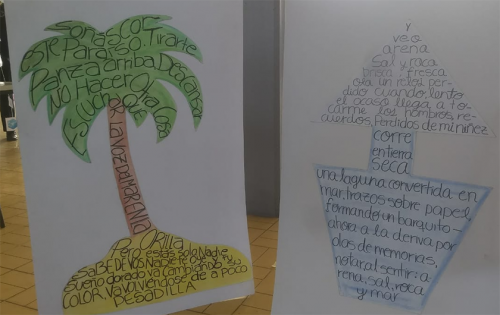 Con asco
este Paraíso. Tirarte
Panza arriba Descansar
No Hacer Otra cosa
Escuchar
LA VOZ
Pero en la orilla
estás solo. Nadie
SABE DE VOS. NADIE te oye y
sueño dorado va cambiando
COLOR. Va volviéndose de a poco
PESADILLA
y
veo
arena
sal y roca
brisa fresca
era un reloj per-
dido cuando lento
el ocaso llega a to-
carme los hombros, re-
cuerdos perdidos de mi niñez
corre
en tierra
seca
una laguna convertida en
mar, trazos sobre papel
formando un barquito
ahora a la deriva por
olas de memorias,
notar al sentir: a
rena, sal, roca
y mar